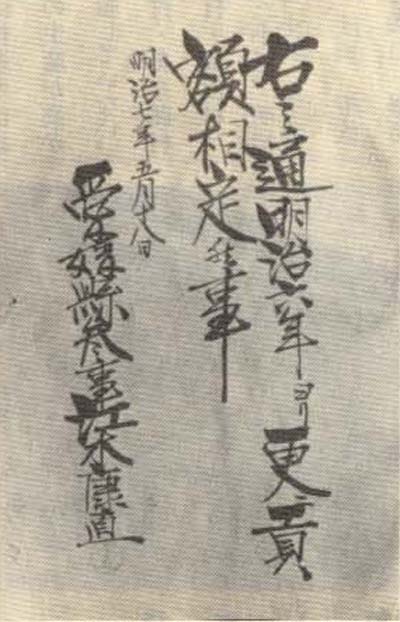 右之通明治六年ヨリ更ニ貢
額相定候事
明治七年五月十八日
愛媛縣参事江木康直